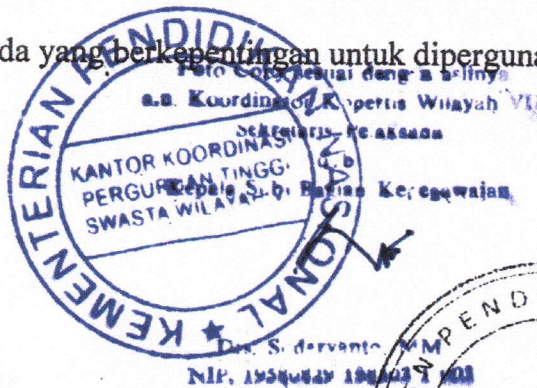 da yang berkepentingan untuk diperguna
Foto Copy sesuai dengan aslinya
a.n. Koordinator Kopertis Wilayah VII
Sekretaris Pelaksana
u.b
Kepala Sub. Bagian Kepegawaian
KEMENTERIAN PENDIDIKAN NASIONAL
KANTOR KOORDINASI
PERGURUAN TINGGI
SWASTA WILAYAH
Drs. Sudaryanto, MM
NIP.
PEND